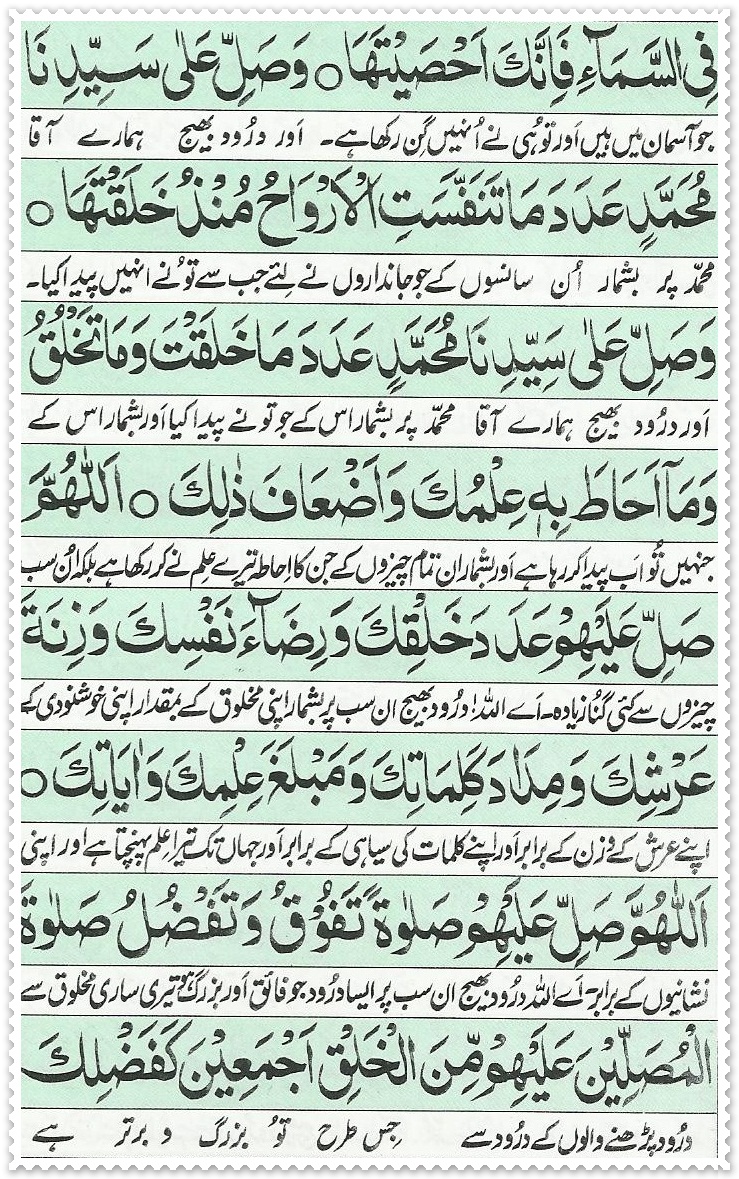 فِي السَّمَآءِ فَاِنَّكَ اَحْصَيْتَهَا ○ وَصَلِّ عَلٰى سَيِّدِنَا
جو آسمان میں ہیں اور تو ہی نے اُنہیں گِن رکھا ہے۔ اور درُود بھیج ہمارے آقا
مُحَمَّدٍ عَدَدَ مَا تَنَفَّسَتِ الْاَرْوَاحُ مُنْذُ خَلَقْتَهَا ○
محمّد پر بشمار اُن سانسوں کے جو جانداروں نے لئے جب سے تو نے انہیں پیدا کیا۔
وَصَلِّ عَلٰى سَيِّدِنَا مُحَمَّدٍ عَدَدَ مَا خَلَقْتَ وَمَا تَخْلُقُ
اور درُود بھیج ہمارے آقا محمّد پر بشمار اس کے جو تو نے پیدا کیا اور بشمار اس کے
وَمَآ اَحَاطَ بِهٖ عِلْمُكَ وَاَضْعَافَ ذٰلِكَ ○ اَللّٰهُمَّ
جنہیں تُو اب پیدا کر رہا ہے اور بشمار ان تمام چیزوں کے جن کا احاطہ تیرے علم نے کر رکھا ہے بلکہ اُن سب
صَلِّ عَلَيْهِمْ عَدَدَ خَلْقِكَ وَرِضَآءَ نَفْسِكَ وَزِنَةَ
چیزوں سے کئی گنا زیادہ۔ اے اللہ! درُود بھیج ان سب پر بشمار اپنی مخلوق کے بمقدار اپنی خوشنودی کے
عَرْشِكَ وَمِدَادَ كَلِمَاتِكَ وَمَبْلَغَ عِلْمِكَ وَاٰيَاتِكَ ○
اپنے عرش کے وزن کے برابر اور اپنے کلمات کی سیاہی کے برابر اور جہاں تک تیرا علم پہنچتا ہے اور اپنی
اَللّٰهُمَّ صَلِّ عَلَيْهِمْ صَلٰوةً تَفُوْقُ وَتَفْضُلُ صَلٰوةَ
نشانیوں کے برابر۔ اے اللہ درُود بھیج ان سب پر ایسا درُود جو فائق اور بزرگ ہو تیری ساری مخلوق سے
الْمُصَلِّيْنَ عَلَيْهِمْ مِّنَ الْخَلْقِ اَجْمَعِيْنَ كَفَضْلِكَ
درُود پڑھنے والوں کے درُود سے جس طرح تو بزرگ و برتر ہے